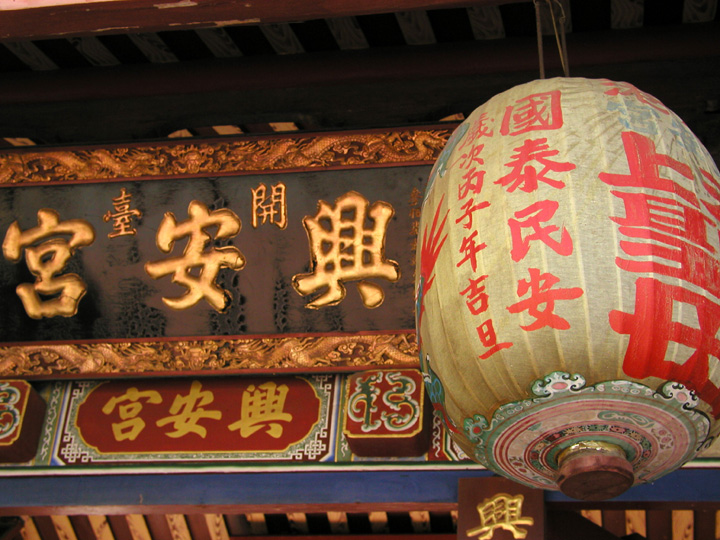 興安宮
開臺
興安宮
國泰民安
歲次丙子年吉旦
上聖母
興